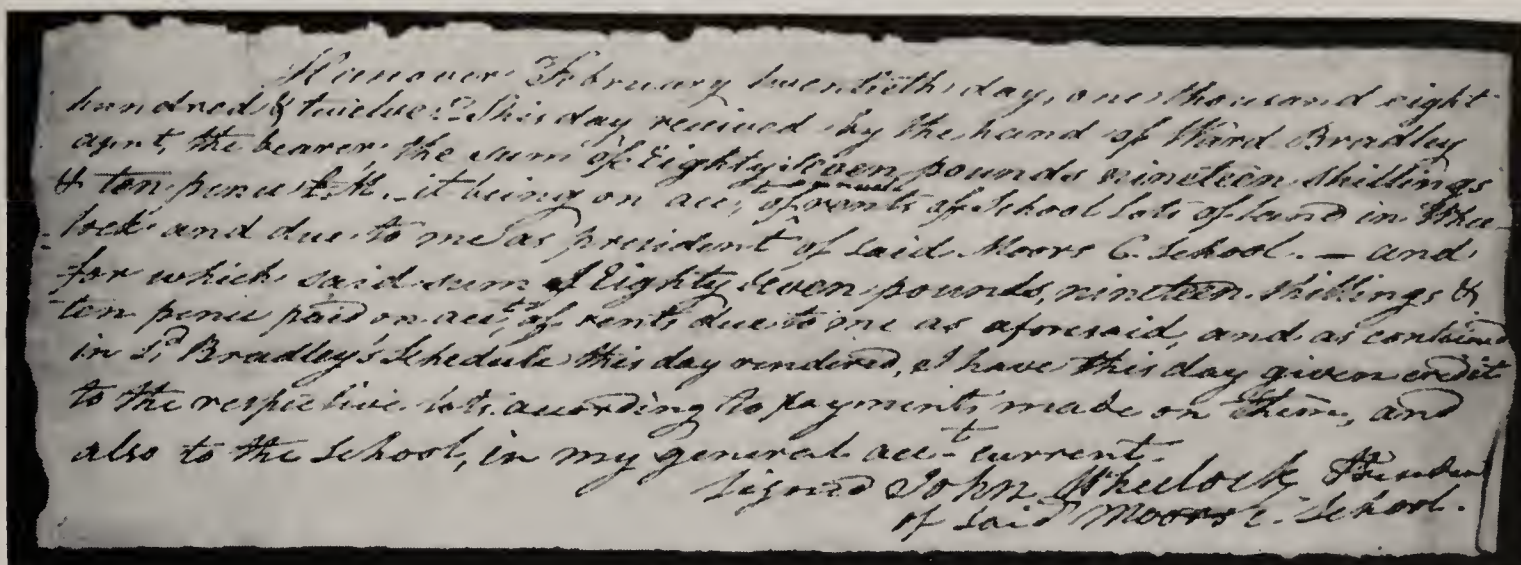 Hanover February twentieth day, one thousand eight
hundred & twelve. This day received by the hand of Ward Bradley
agent, the bearer, the sum of Eighty seven pounds nineteen shillings
& ten pence L.M. - it being on acct. of annual rents of School Lots of land in Whee-
lock and due to me as president of said Moors C. School. — and
for which said sum of Eighty seven pounds, nineteen shillings &
ten pence paid on acct. of rents due to me as aforesaid, and as contained
in sd. Bradley's Schedule this day rendered, I have this day given credit
to the respective lots according to payments made on them, and
also to the School, in my general acct. current.
Signed John Wheelock President
of said Moors C. School.